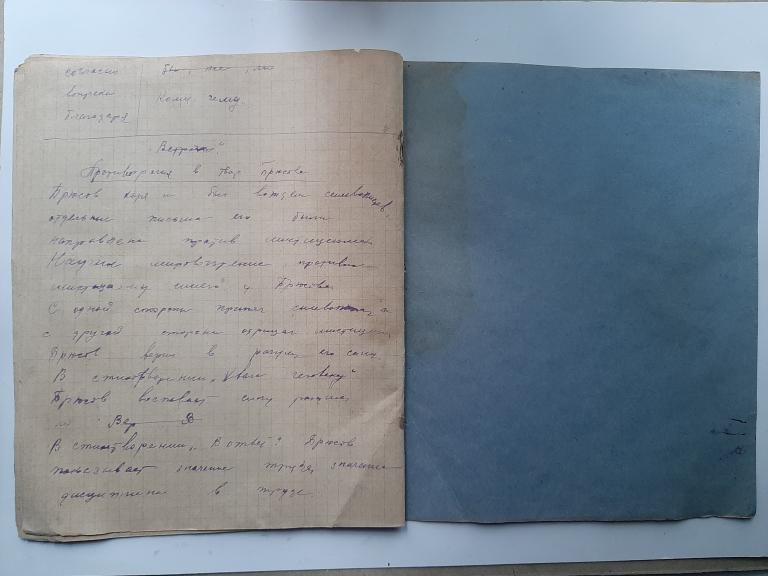 согласно
вопреки кому чему
благодаря
Противоречия в твор Брюсова
Брюсов хотя и был вождем символистов,
отдельные письма его были
направлены против мистицизма.
Научное мировоззрение против
у Брюсова
С одной стороны принял символизм, а
с другой стороны отрицал мистицизм
Брюсов верил в разум, его силу.
В стихотворении „Хвала человеку"
Брюсов воспевает силу разума,
В стихотворении „В ответ" Брюсов
показывает значение труда, значение
дисциплины в труде.